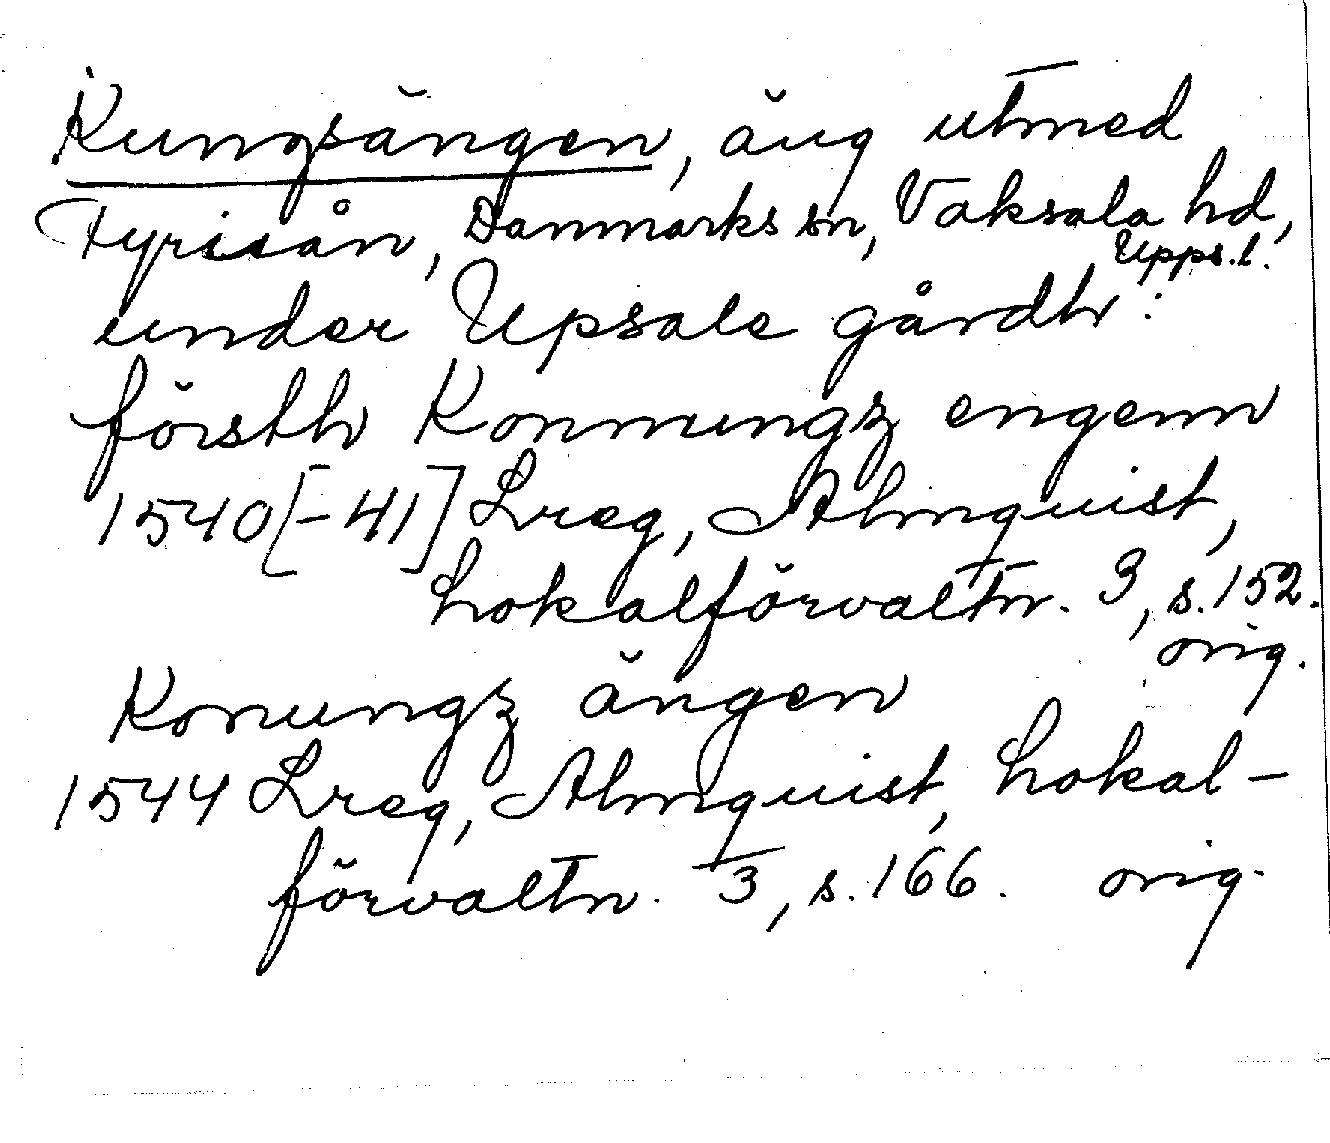 Kungsängen, äng utmed
Fyrisån, Danmarks sn, Vaksala hd,
Upps.l.
under Upsale gårdh:
försth Konnungz engenn
1540[-41] Lreg, Almquist,
Lokalförvaltn. 3, s.152.
orig.
Konungz ängen
1544 Lreg, Almquist, Lokal-
förvaltn. 3, s.166. orig.